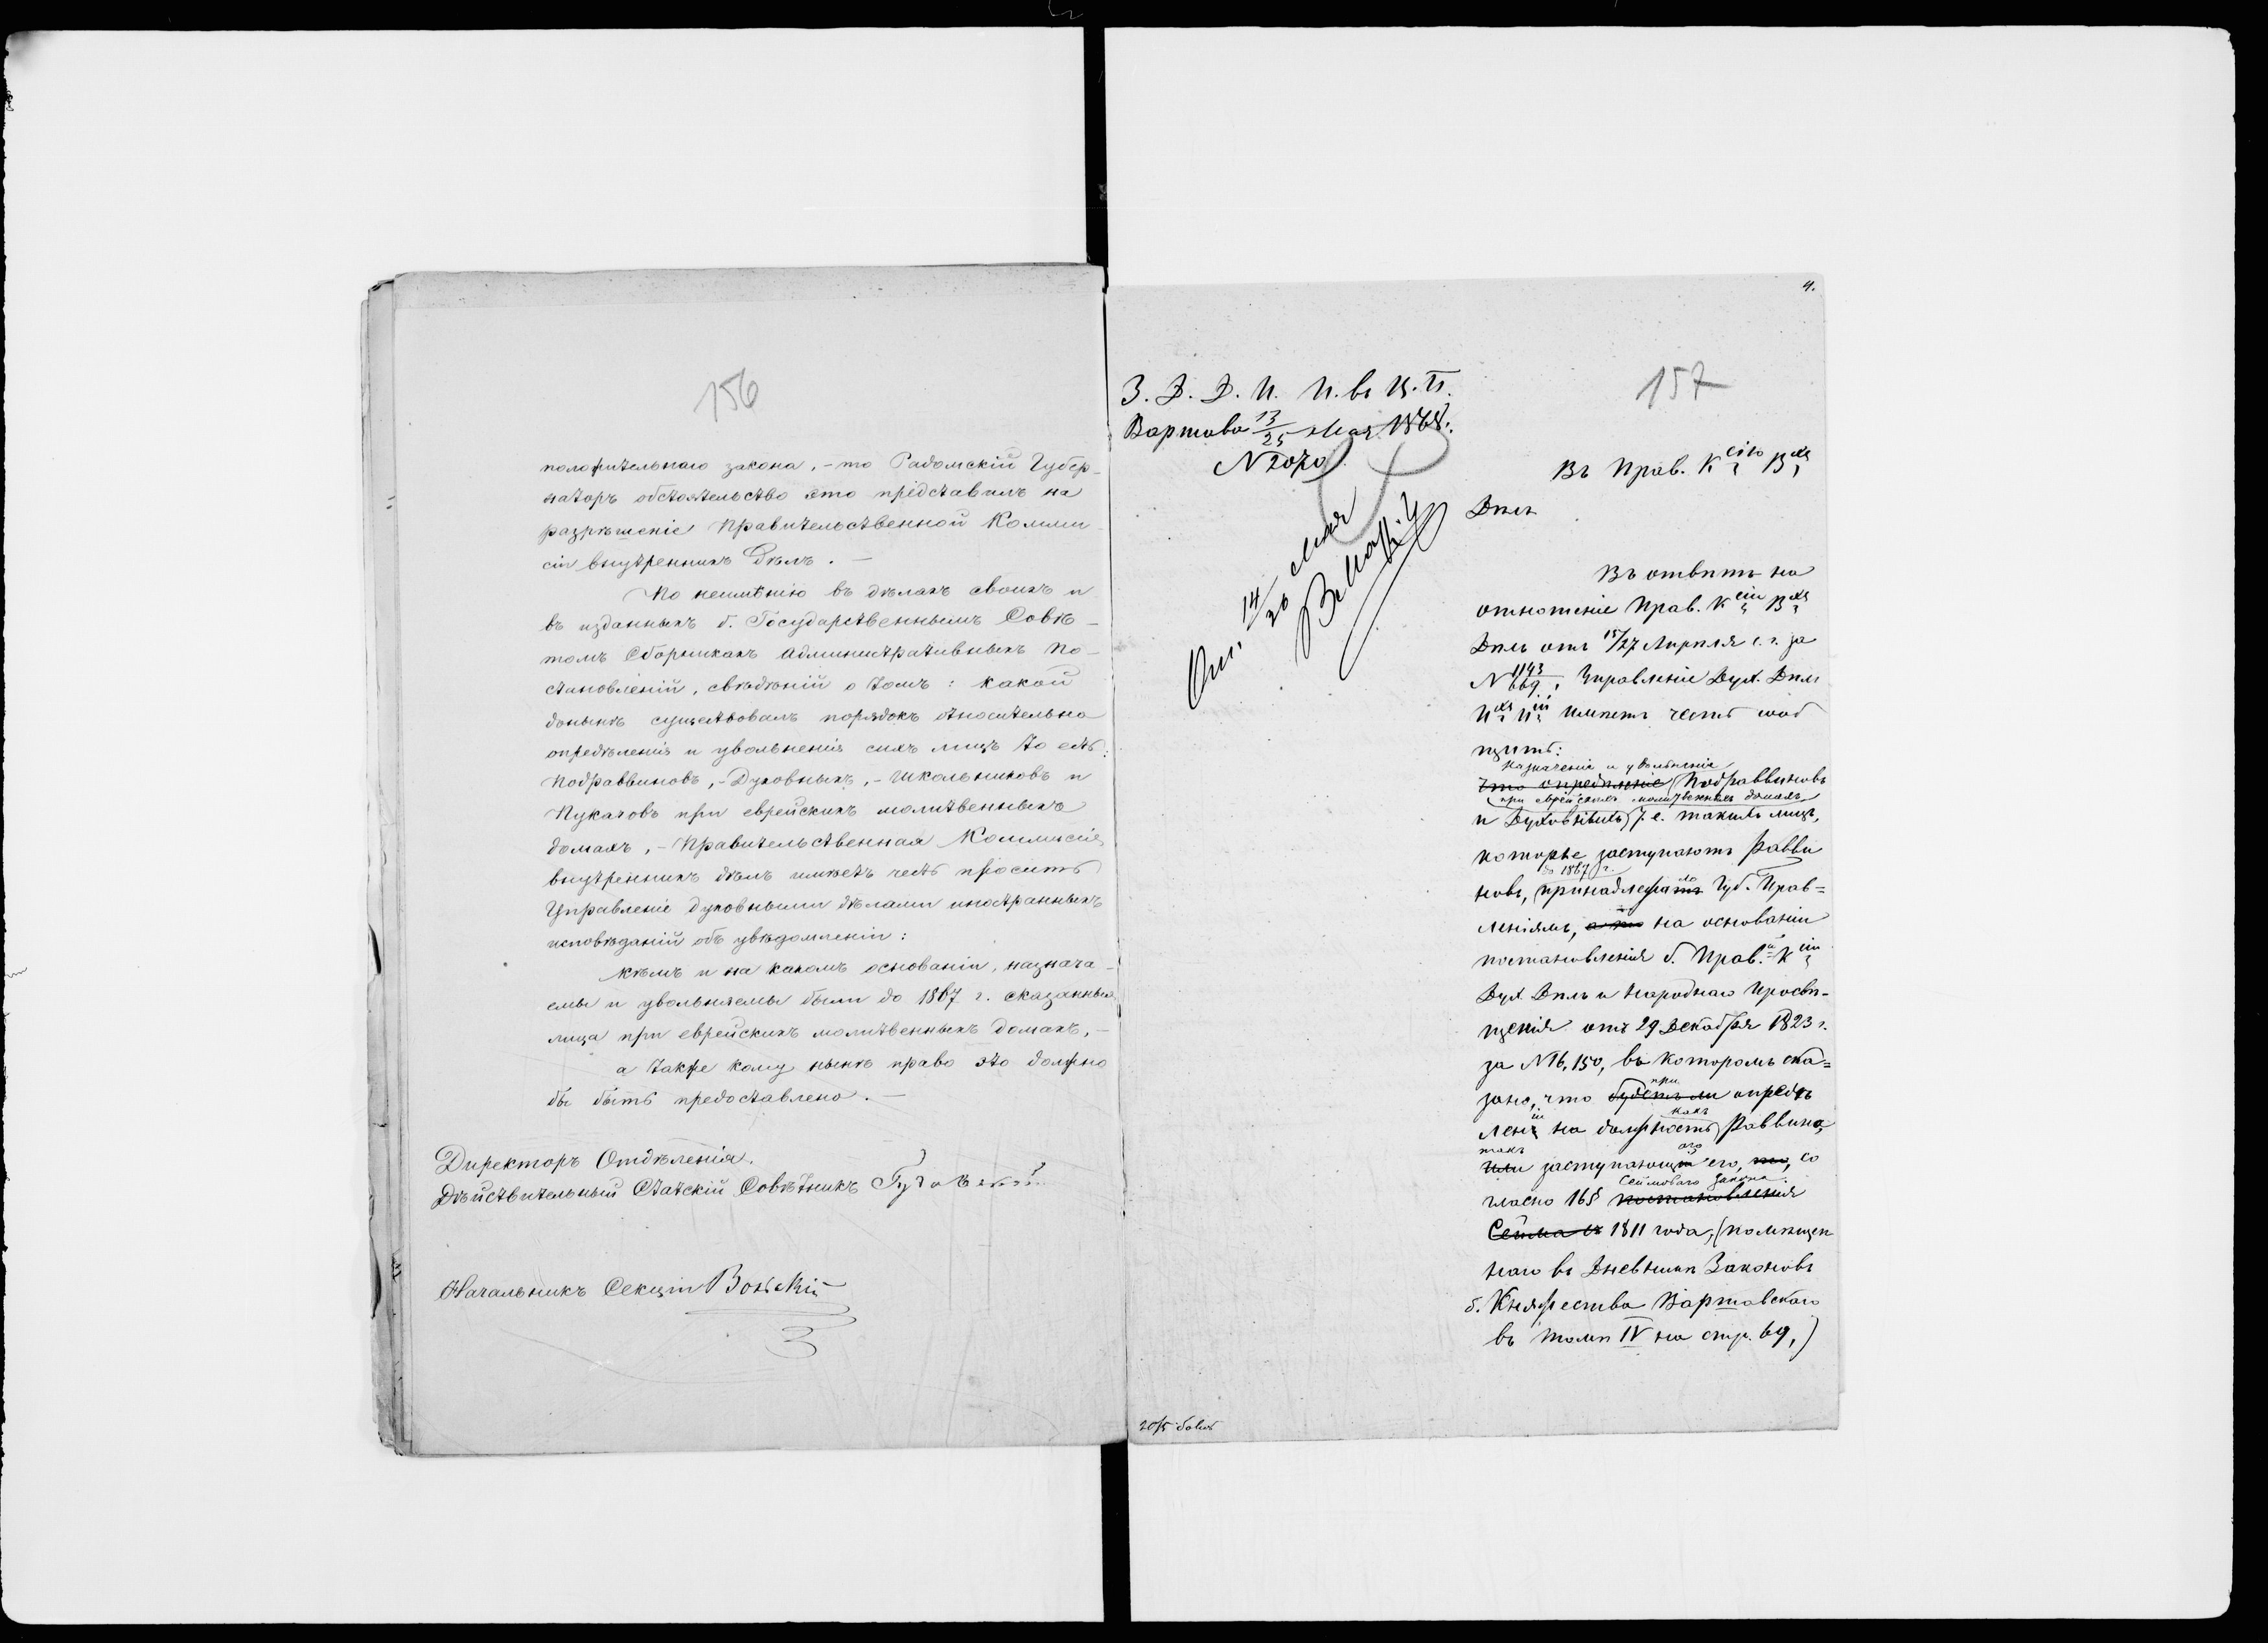 156
положительнаго закона, - то Радомскій Губер-
наторъ обстоятельство это представилъ на
разрѣшеніе Правительственной Комми-
сіи внутреннихъ Дѣлъ. -
По неимѣнію въ дѣлахъ своихъ и
въ изданныхъ б. Государственнымъ Совѣ-
томъ Сборникахъ Административныхъ По-
становленій, свѣдѣній о томъ: какой
донынѣ существовалъ порядокъ относительно
опредѣленія и увольненія сихъ лицъ то есть:
Подраввиновъ, - Духовныхъ, - Школьниковъ и
Пукачовъ при еврейскихъ молитвенныхъ
домахъ, - Правительственная Коммисія
внутреннихъ дѣлъ имѣетъ честь просить
Управленіе духовными дѣлами иностранныхъ
исповѣданій объ увѣдомленіи:
кѣмъ и на какомъ основаніи, назнача-
емы и увольняемы были до 1867 г. сказанныя
лица при еврейскихъ молитвенныхъ домахъ, -
а также кому нынѣ право это должно
бы быть предоставлено. -
Директоръ Отдѣленія.
Дѣйствительный Статскій Совѣтникъ
Начальникъ Секціи
4.
157
З. Д. Д. И. И. въ Ц. П.
Варшава 13/25 Мая 1868 г.
N 2070
14/26 Мая
Въ Прав. Ксію Вхъ
Дѣлъ
Въ отвѣтъ на
отношеніе Прав. Ксіи Вхъ
Дѣлъ отъ 15/27 Апрѣля с. г. за
N 1143/669, Управленіе Дух. Дѣлъ
Ихъ Иій имѣетъ честь сооб
щить:
назначеніе и увольненіе
что опредѣленіе Подраввиновъ
при еврейскихъ молитвенныхъ домахъ
и Духовныхъ, т. е. такихъ лицъ,
которые заступаютъ Равви
до 1867 г.
новъ, принадлежало Губ. Прав=
леніямъ, на основаніи
постановленія б. Прав. Ксіи
Дух. Дѣлъ и Народнаго Просвѣ-
щенія отъ 29 Декабря 1823 г.
за N 16,150, въ которомъ ска=
при
зано, что будетъ ли опредѣ
какъ
леніи на должность Раввина,
такъ
или заступающаго его, со
Сеймоваго Закона
гласно 16§ постановленія
Сейма 1811 года, (помѣщен
наго въ Дневникѣ Законовъ
б. Княжества Варшавскаго
въ томѣ IV на стр. 69,)
20/5